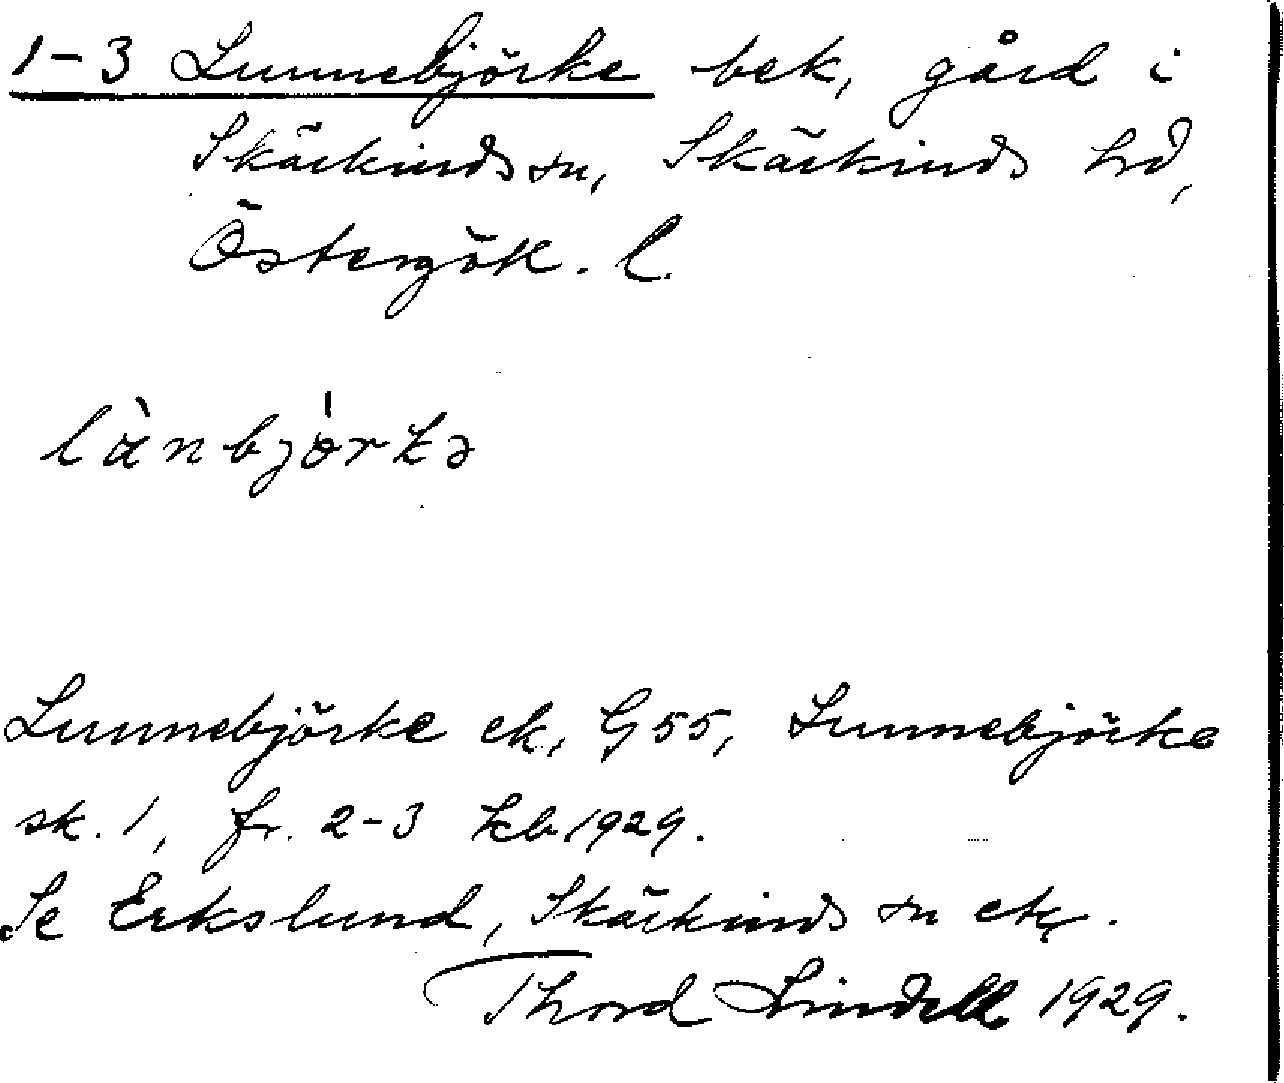 1-3 Lunnebjörke bek, gård i
Skärkinds sn, Skärkinds hd,
Östergötl. l.
lànbjòrkə
Lunnebjörke ek, G55, Lunnebjörke
sk. 1, fr. 2-3 kb 1929.
Se Erkslund, Skärkinds sn ek.
Thord Lindell 1929.